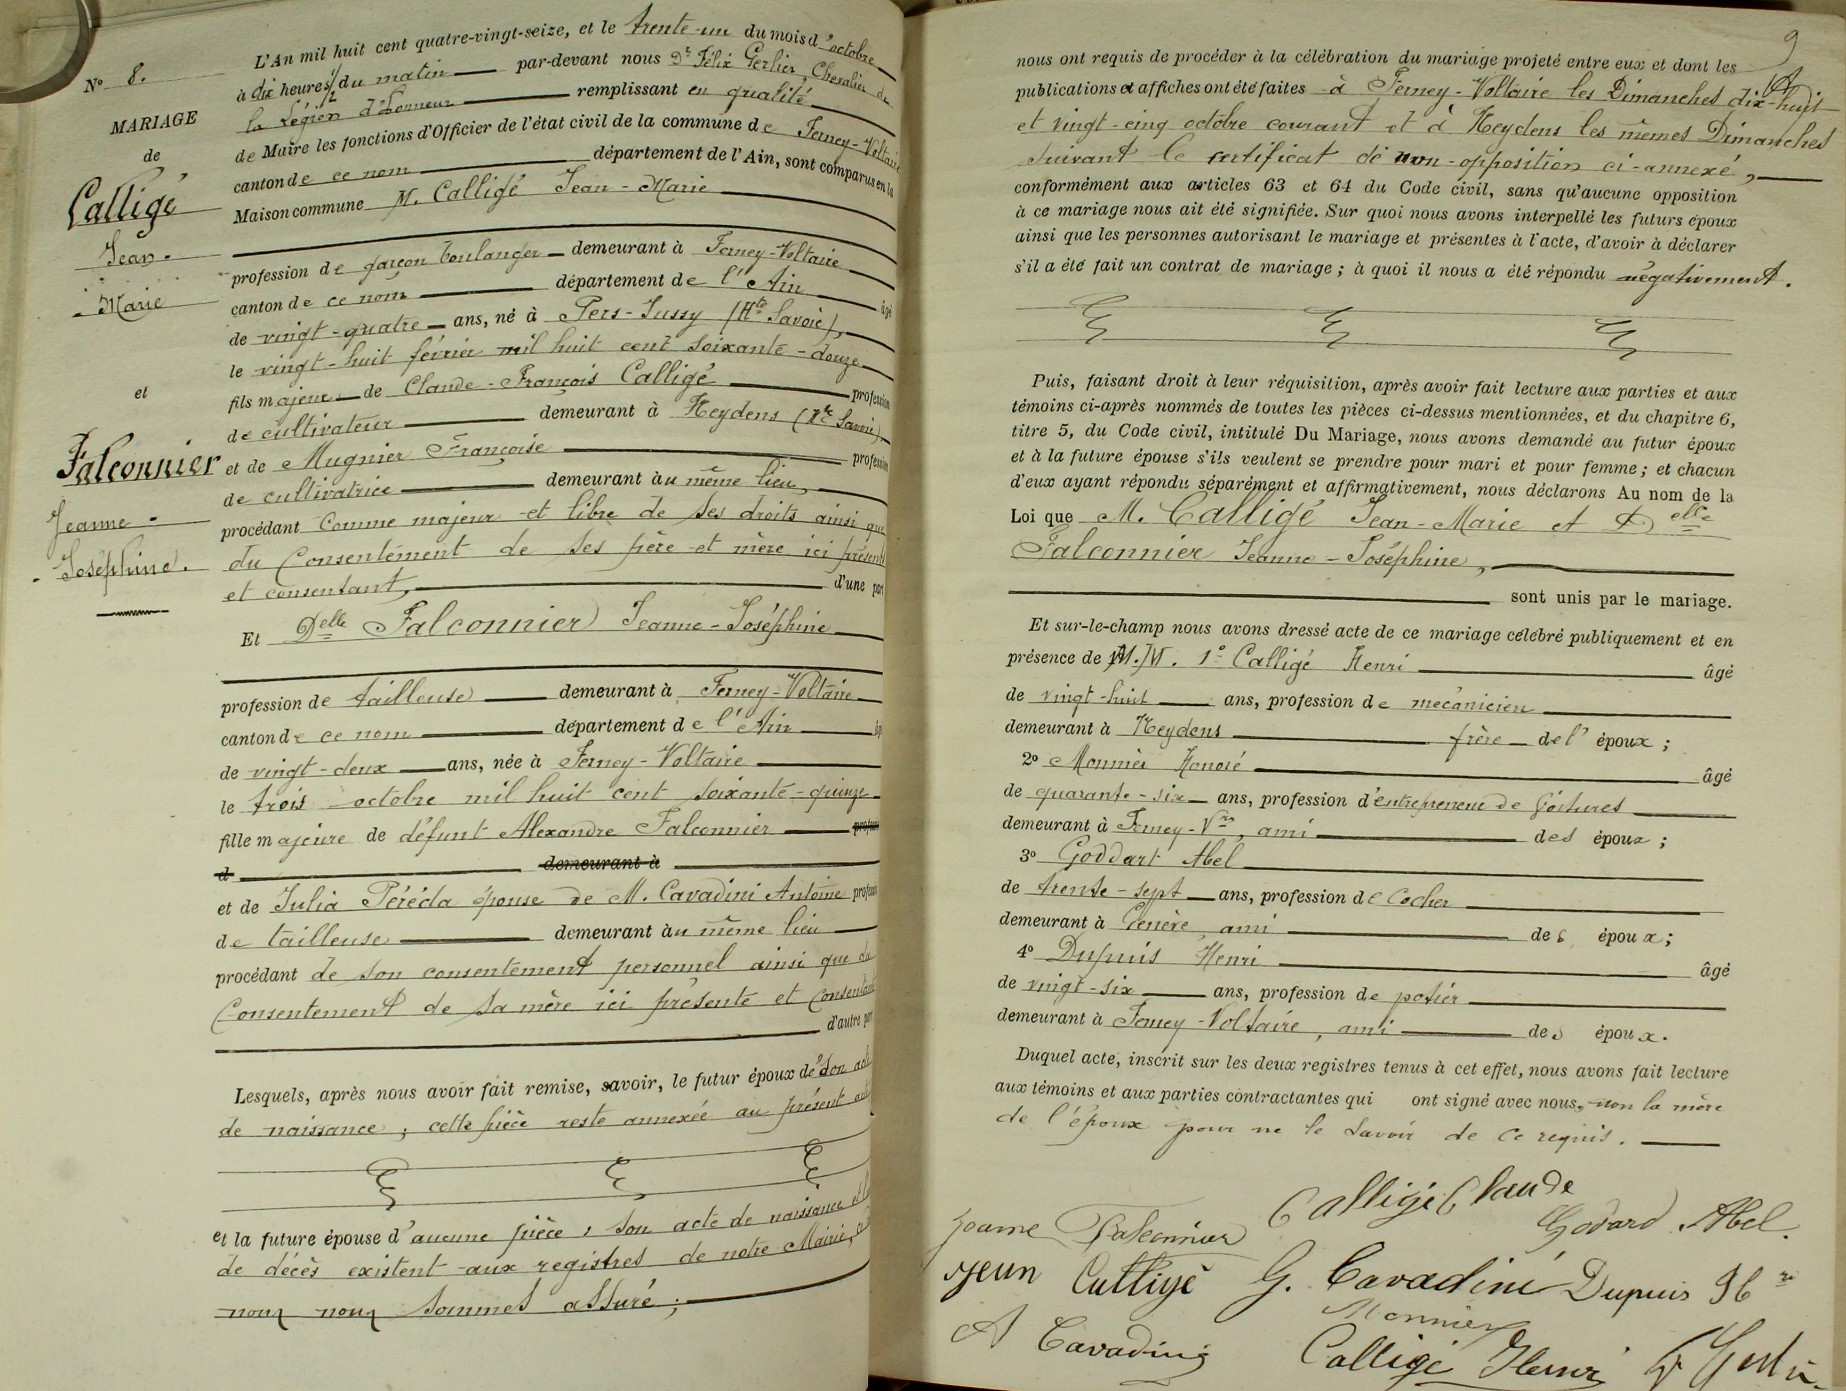 N° 8.
MARIAGE
de
Calligé
Jean-
Marie
et
Falconnier
Jeanne-
Joséphine.
L'An mil huit cent quatre-vingt-seize, et le trente-un du mois d'octobre
à dix heures ½ du matin par-devant nous Dr Félix Gerlier, Chevalier de
la Légion d'Honneur remplissant en qualité
de Maire les fonctions d'Officier de l'état civil de la commune de Ferney-Voltaire
canton de ce nom département de l'Ain, sont comparus en la
Maison commune M. Calligé Jean-Marie
profession de garçon boulanger demeurant à Ferney-Voltaire
canton de ce nom département de l'Ain âgé
de vingt-quatre ans, né à Pers-Jussy (Hte Savoie),
le vingt-huit février mil huit cent soixante-douze
fils majeur de Claude-François Calligé profession
de cultivateur demeurant à Reydens (Hte Savoie),
et de Mugnier Françoise profession
de cultivatrice demeurant au même lieu,
procédant comme majeur et libre de ses droits ainsi que
du Consentement de ses père et mère ici présents
et consentant, d'une part
Et Delle Falconnier Jeanne-Joséphine
profession de tailleuse demeurant à Ferney-Voltaire
canton de ce nom département de l'Ain âgé
de vingt-deux ans, née à Ferney-Voltaire
le trois octobre mil huit cent soixante-quinze
fille majeure de défunt Alexandre Falconnier profession
d demeurant à
et de Julia Péréda épouse de M. Cavadini Antoine profession
de tailleuse demeurant au même lieu
procédant de son consentement personnel ainsi que du
Consentement de sa mère ici présente et consentant
d'autre part
Lesquels, après nous avoir fait remise, savoir, le futur époux de son acte
de naissance ; cette pièce reste annexée au présent acte
et la future épouse d'aucune pièce, son acte de naissance et
de décès existent aux registres de notre Mairie,
nous nous sommes assuré ;
9
nous ont requis de procéder à la célébration du mariage projeté entre eux et dont les
publications et affiches ont été faites à Ferney-Voltaire les Dimanches dix-huit
et vingt-cinq octobre courant et à Reydens les mêmes Dimanches
suivant le certificat de non-opposition ci-annexé,
conformément aux articles 63 et 64 du Code civil, sans qu'aucune opposition
à ce mariage nous ait été signifiée. Sur quoi nous avons interpellé les futurs époux
ainsi que les personnes autorisant le mariage et présentes à l'acte, d'avoir à déclarer
s'il a été fait un contrat de mariage ; à quoi il nous a été répondu négativement.
Puis, faisant droit à leur réquisition, après avoir fait lecture aux parties et aux
témoins ci-après nommés de toutes les pièces ci-dessus mentionnées, et du chapitre 6,
titre 5, du Code civil, intitulé Du Mariage, nous avons demandé au futur époux
et à la future épouse s'ils veulent se prendre pour mari et pour femme ; et chacun
d'eux ayant répondu séparément et affirmativement, nous déclarons Au nom de la
Loi que M. Calligé Jean-Marie et Delle
Falconnier Jeanne-Joséphine,
sont unis par le mariage.
Et sur-le-champ nous avons dressé acte de ce mariage célébré publiquement et en
présence de M.M. 1° Calligé Henri âgé
de vingt-huit ans, profession de mécanicien
demeurant à Reydens frère de l'époux ;
2° Monnier Honoré âgé
de quarante-six ans, profession d'entrepreneur de voitures
demeurant à Ferney-Vre, ami des époux ;
3° Goddart Abel
de trente-sept ans, profession de Cocher
demeurant à Genève, ami des époux ;
4° Dupuis Henri âgé
de vingt-six ans, profession de potier
demeurant à Ferney-Voltaire, ami des époux.
Duquel acte, inscrit sur les deux registres tenus à cet effet, nous avons fait lecture
aux témoins et aux parties contractantes qui ont signé avec nous, non la mère
de l'époux pour ne le savoir de ce requis.
Calligé Claude
Jeanne Falconnier Godard Abel.
Jean Calligé G. Cavadini Dupuis
Monnier
A Cavadini Calligé Henri